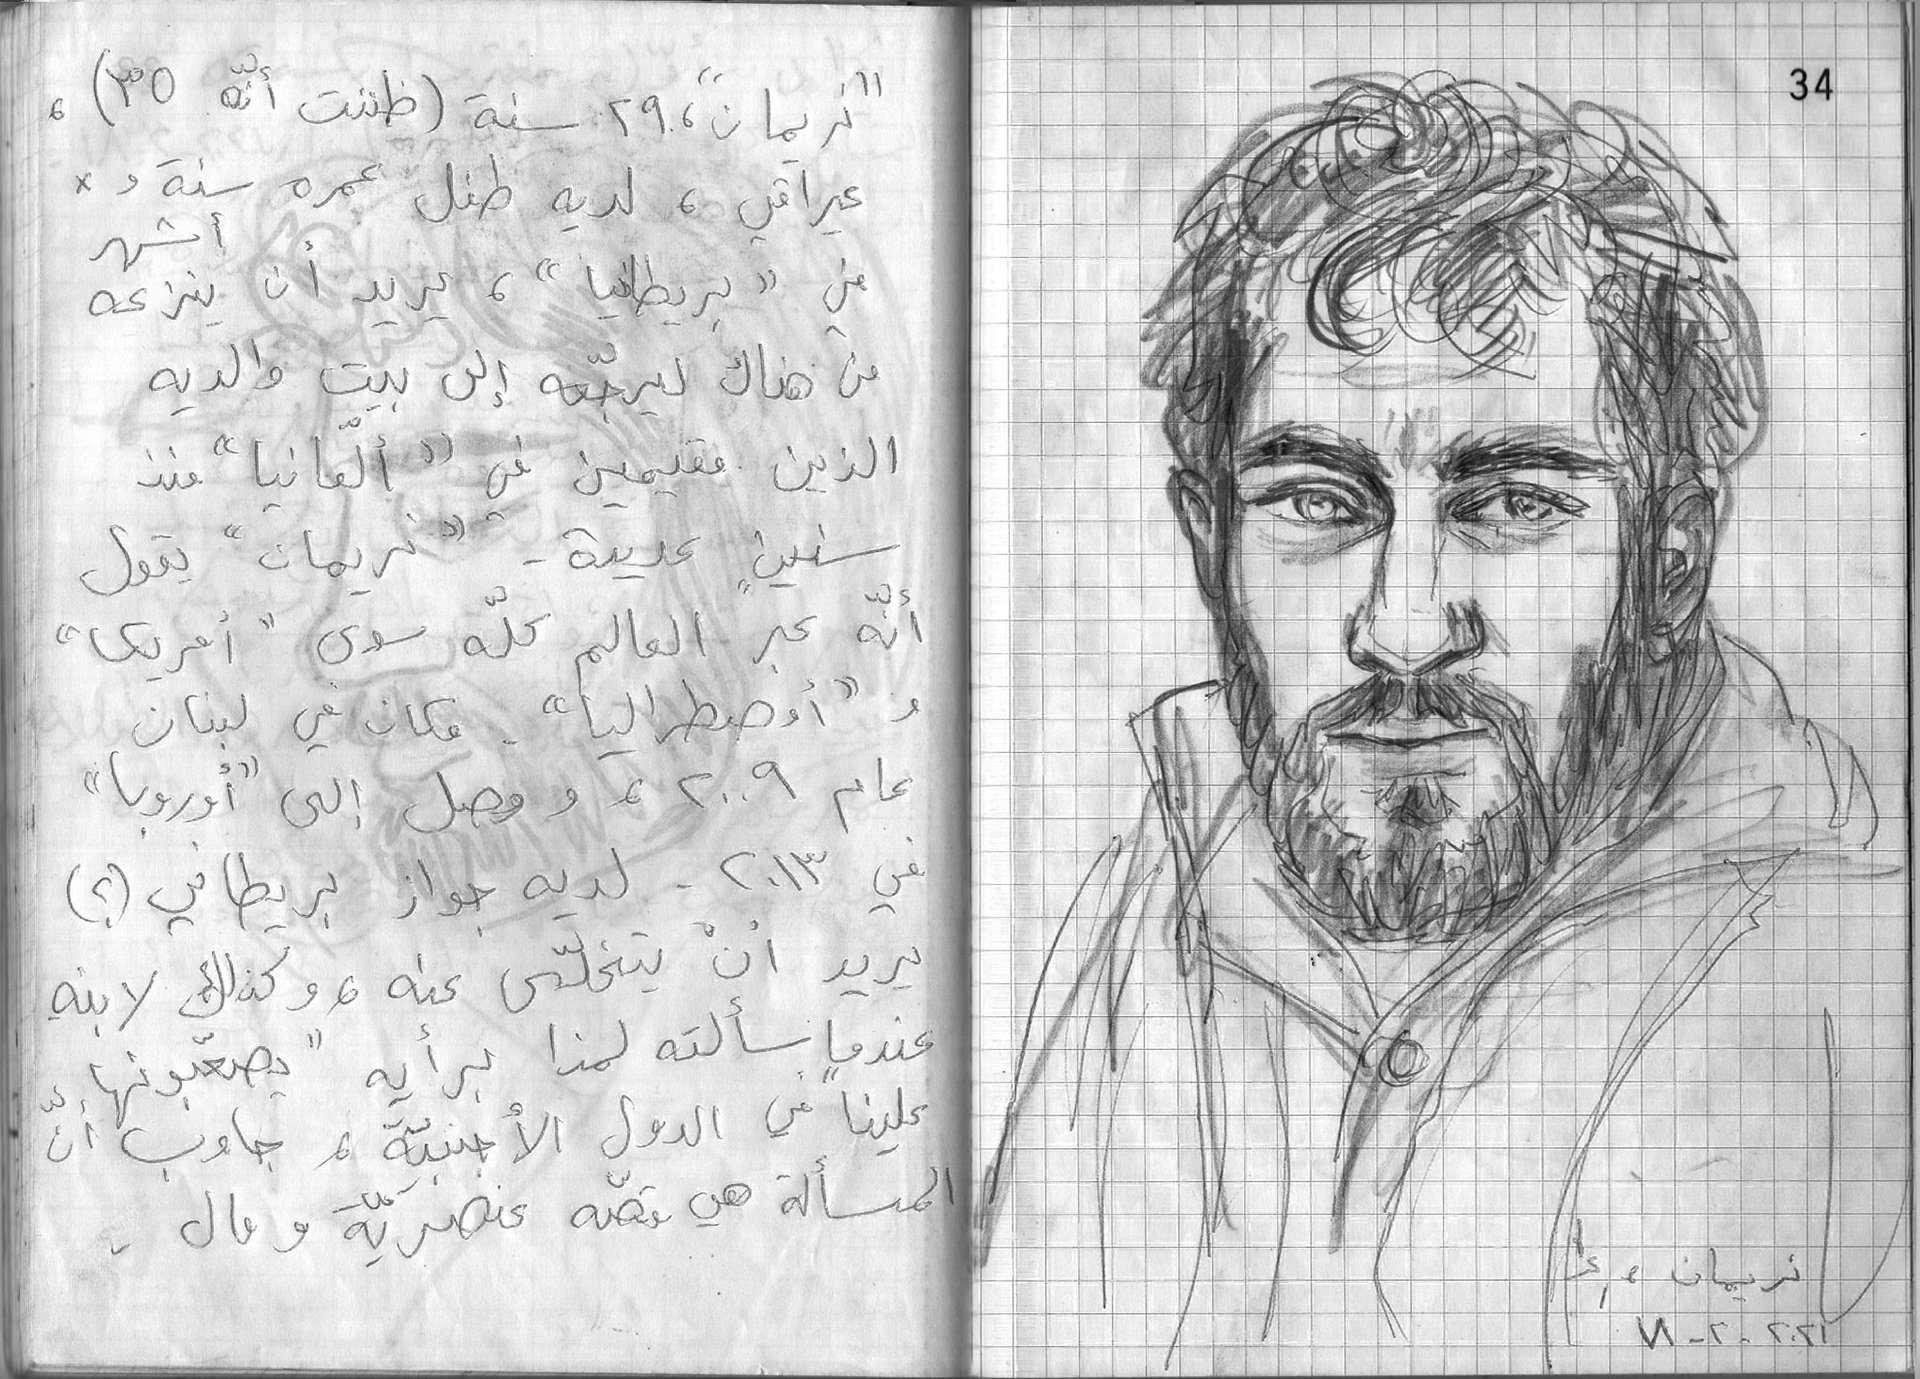 "نريمان"، ٢٩ سنة (ظننت أنّه ٣٥)،
عيراقي، لديه طفل عمره سنة و x
أشهر
في "بريطانيا"، يريد أن ينزعه
من هناك ليرجّعه إلى بيت والديه
الذين مقيمين في "ألمانيا" منذ
سنينٍ عديدة - "نريمان" يقول
أنّه عبر العالم كلّه سوى "أمريكا"
و "أوصطراليا". فكان في لبنان
عام ٢٠٠٩، و وصل إلى "أوروبا"
في ٢٠١٣ - لديه جواز بريطاني (؟)
يريد أنْ يتخلّص عنه، وكذلك لابنه
عندما سألته لمذا برأيه "يصعّبونها
علينا" في الدول الأجنبيّة، جاوب أنّ
المسألة هي قصّه عنصريّة و قال -
34
نريمان
٢٠٢١ - ٢ -